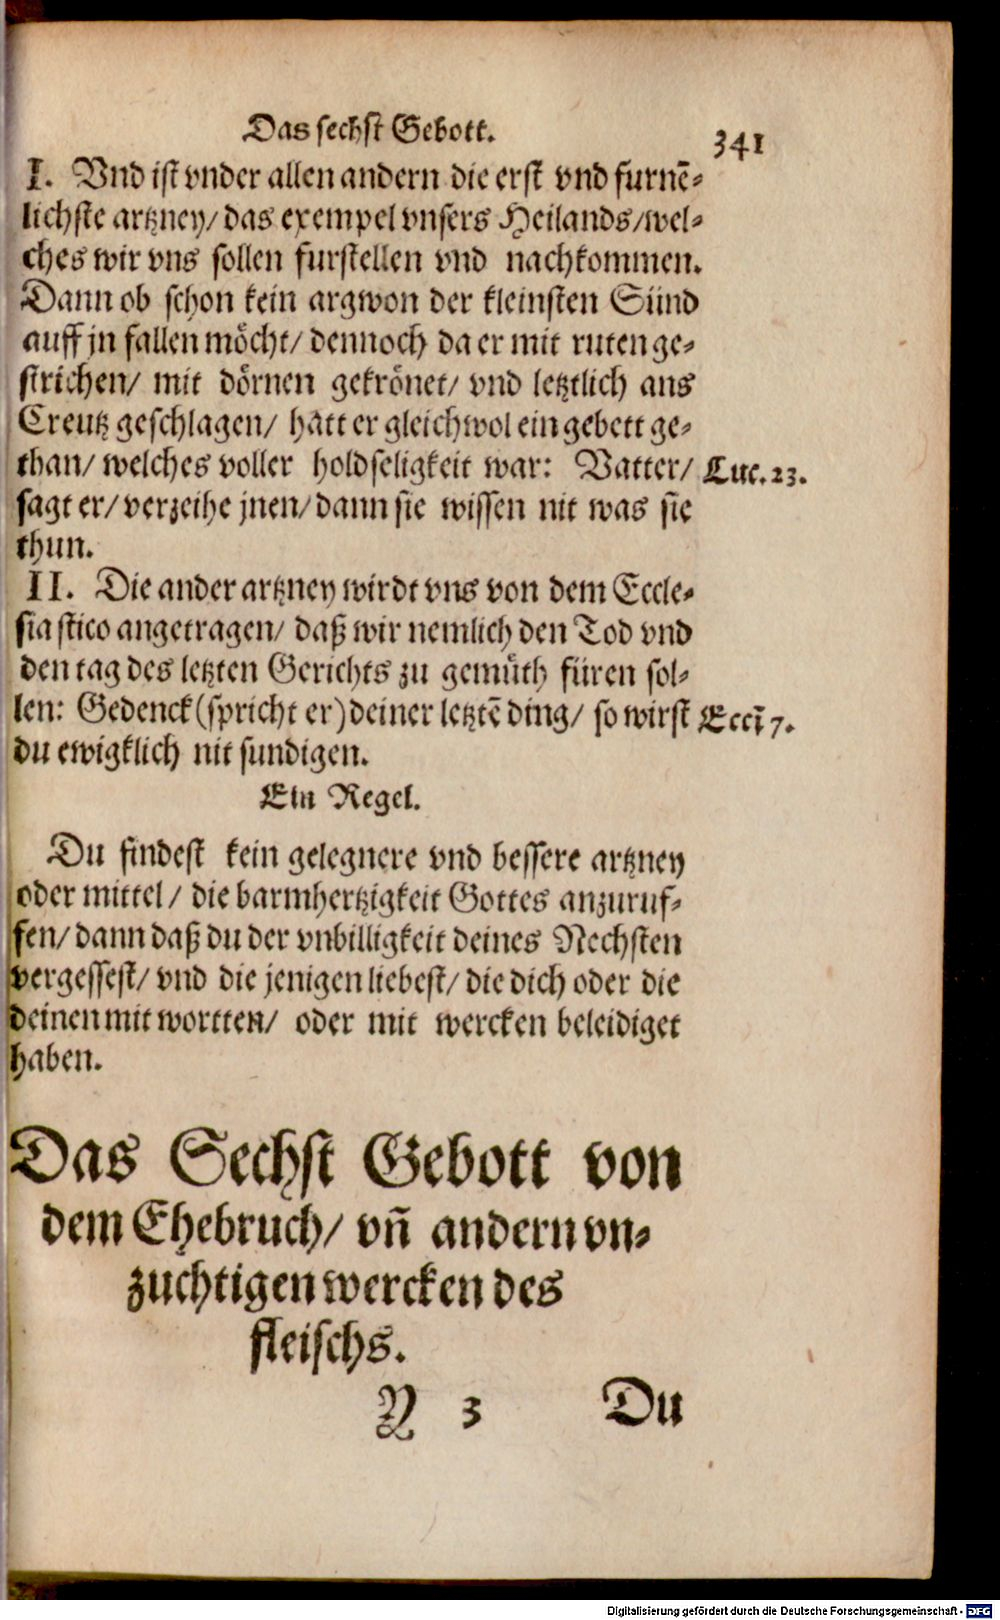 Das sechst Gebott. 341
I. Vnd ist vnder allen andern die erst vnd furnē-
lichste artzney/ das exempel vnsers Heilands/ wel-
ches wir vns sollen furstellen vnd nachkommen.
Dann ob schon kein argwon der kleinsten Sünd
auff jn fallen möcht/ dennoch da er mit ruten ge-
strichen/ mit dörnen gekrönet/ vnd letztlich ans
Creutz geschlagen/ hatt er gleichwol ein gebett ge-
than/ welches voller holdseligkeit war: Vatter/ Luc. 23.
sagt er/ verzeihe jnen/ dann sie wissen nit was sie
thun.
II. Die ander artzney wirdt vns von dem Eccle-
siastico angetragen/ daß wir nemlich den Tod vnd
den tag des letzten Gerichts zu gemüth füren sol-
len: Gedenck (spricht er) deiner letztē ding/ so wirst Eccī 7.
du ewigklich nit sundigen.
Ein Regel.
Du findest kein gelegnere vnd bessere artzney
oder mittel/ die barmhertzigkeit Gottes anzuruf-
fen/ dann daß du der vnbilligkeit deines Nechsten
vergessest/ vnd die jenigen liebest/ die dich oder die
deinen mit wortten/ oder mit wercken beleidiget
haben.
Das Sechst Gebott von
dem Ehebruch/ vñ andern vn-
zuchtigen wercken des
fleischs.
Y 3 Du
Digitalisierung gefördert durch die Deutsche Forschungsgemeinschaft - DFG